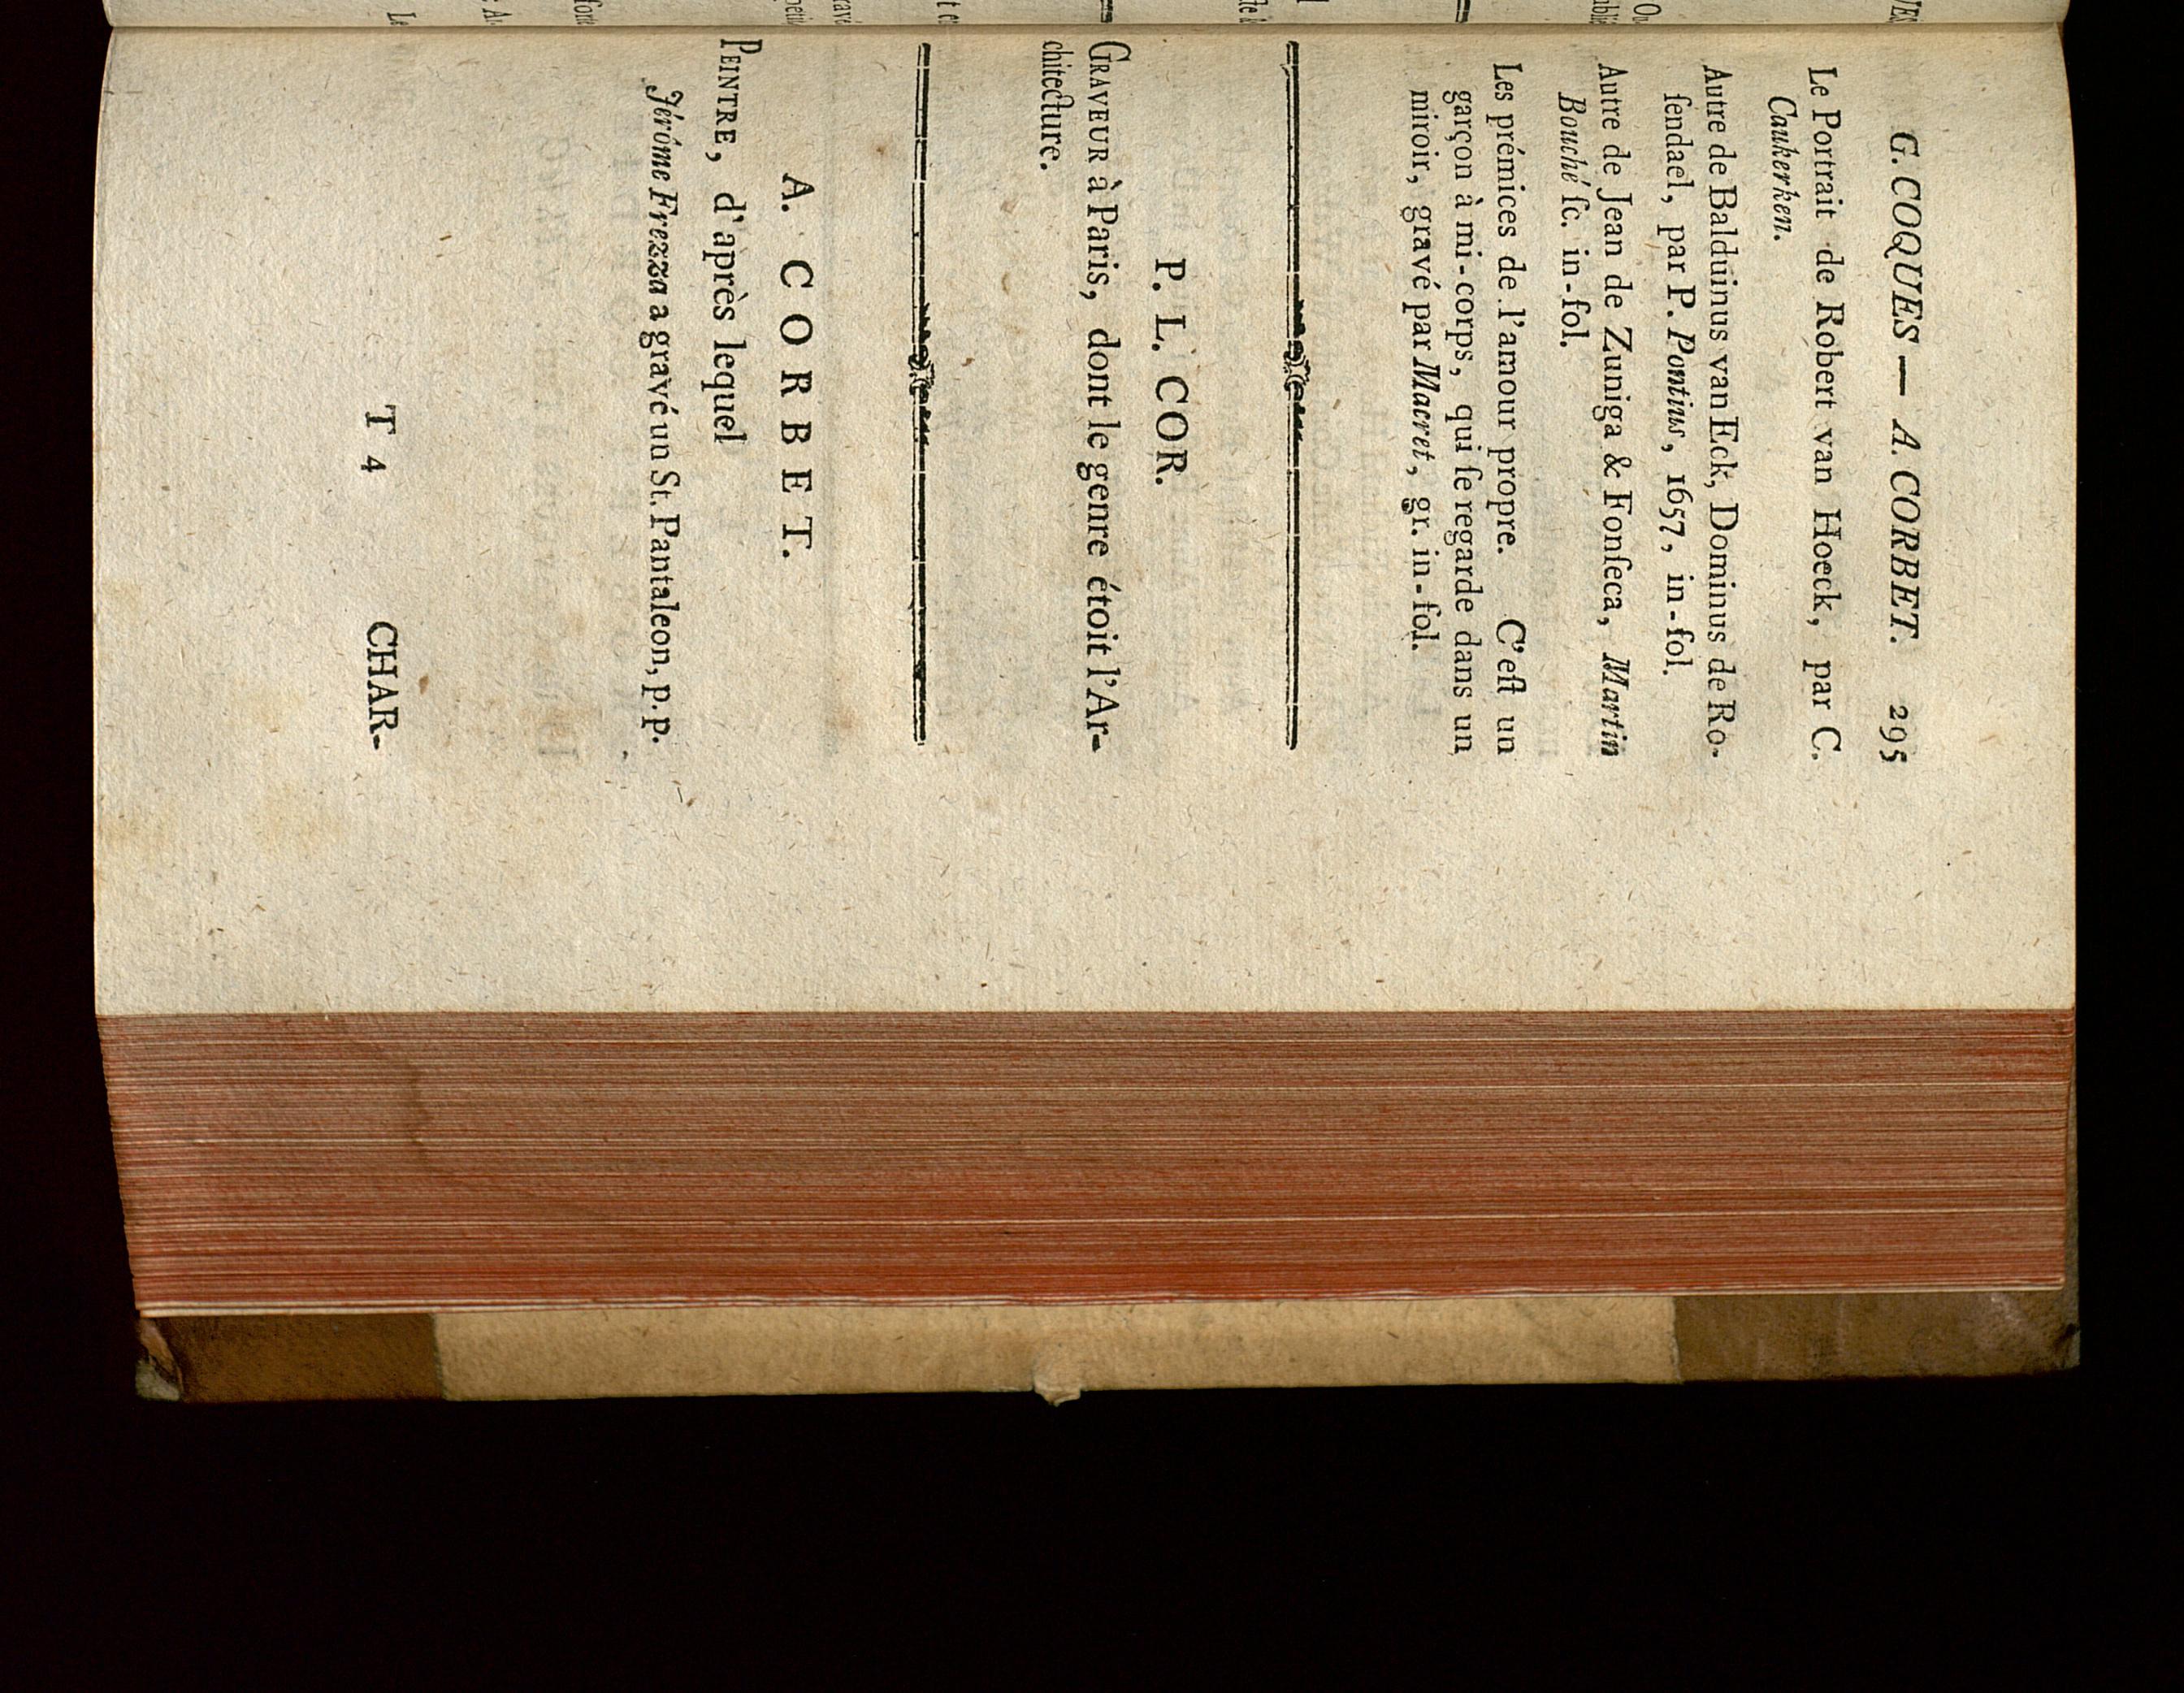 G. COQUES — A. CORBET. 295
Le Portrait de Robert van Hoeck, par C.
Caukerken.
Autre de Balduinus van Eck, Dominus de Ro-
ſendael, par P. Pontius, 1657, in-fol.
Autre de Jean de Zuniga & Fonſeca, Martin
Bouché ſc. in-fol.
Les prémices de l'amour propre. C'eſt un
garçon à mi-corps, qui ſe regarde dans un
miroir, gravé par Macret, gr. in-fol.
P. L. COR.
GRAVEUR à Paris, dont le genre étoit l'Ar-
chitecture.
A. CORBET.
PEINTRE, d'après lequel
Jérôme Frezza a gravé un St. Pantaleon, p. p.
T 4 CHAR-